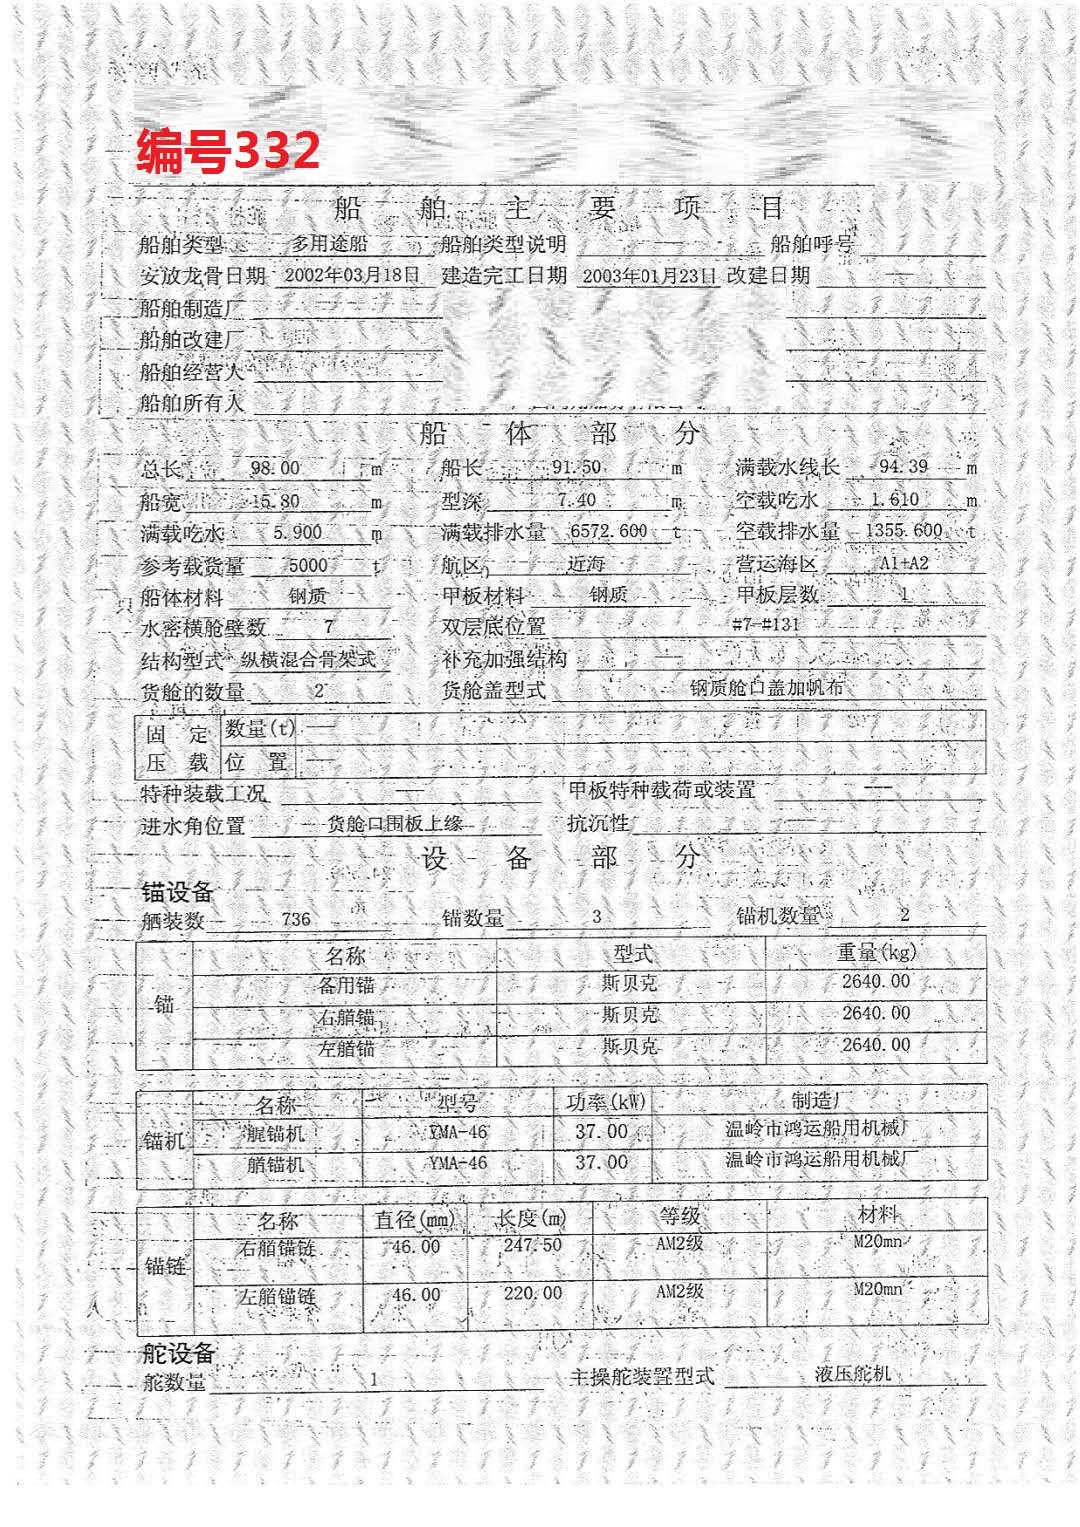 编号332
船舶主要项目
船舶类型 多用途船 船舶类型说明 --- 船舶呼号
安放龙骨日期 2002年03月18日 建造完工日期 2003年01月23日 改建日期 ---
船舶制造厂
船舶改建厂
船舶经营人
船舶所有人
船体部分
总长 98.00 m 船长 91.50 m 满载水线长 94.39 m
船宽 15.80 m 型深 7.40 m 空载吃水 1.610 m
满载吃水 5.900 m 满载排水量 6572.600 t 空载排水量 1355.600 t
参考载货量 5000 t 航区 近海 营运海区 A1+A2
船体材料 钢质 甲板材料 钢质 甲板层数 1
水密横舱壁数 7 双层底位置 #7-#131
结构型式 纵横混合骨架式 补充加强结构 ---
货舱的数量 2 货舱盖型式 钢质舱口盖加帆布
固定压载 数量(t) ---
位置 ---
特种装载工况 --- 甲板特种载荷或装置 ---
进水角位置 货舱口围板上缘 抗沉性 ---
设备部分
锚设备
舾装数 736 锚数量 3 锚机数量 2
名称 型式 重量(kg)
锚
备用锚 斯贝克 2640.00
右艏锚 斯贝克 2640.00
左艏锚 斯贝克 2640.00
名称 型号 功率(kW) 制造厂
锚机
艉锚机 YMA-46 37.00 温岭市鸿运船用机械厂
艏锚机 YMA-46 37.00 温岭市鸿运船用机械厂
名称 直径(mm) 长度(m) 等级 材料
锚链
右艏锚链 46.00 247.50 AM2级 M20mn
左艏锚链 46.00 220.00 AM2级 M20mn
舵设备
舵数量 1 主操舵装置型式 液压舵机